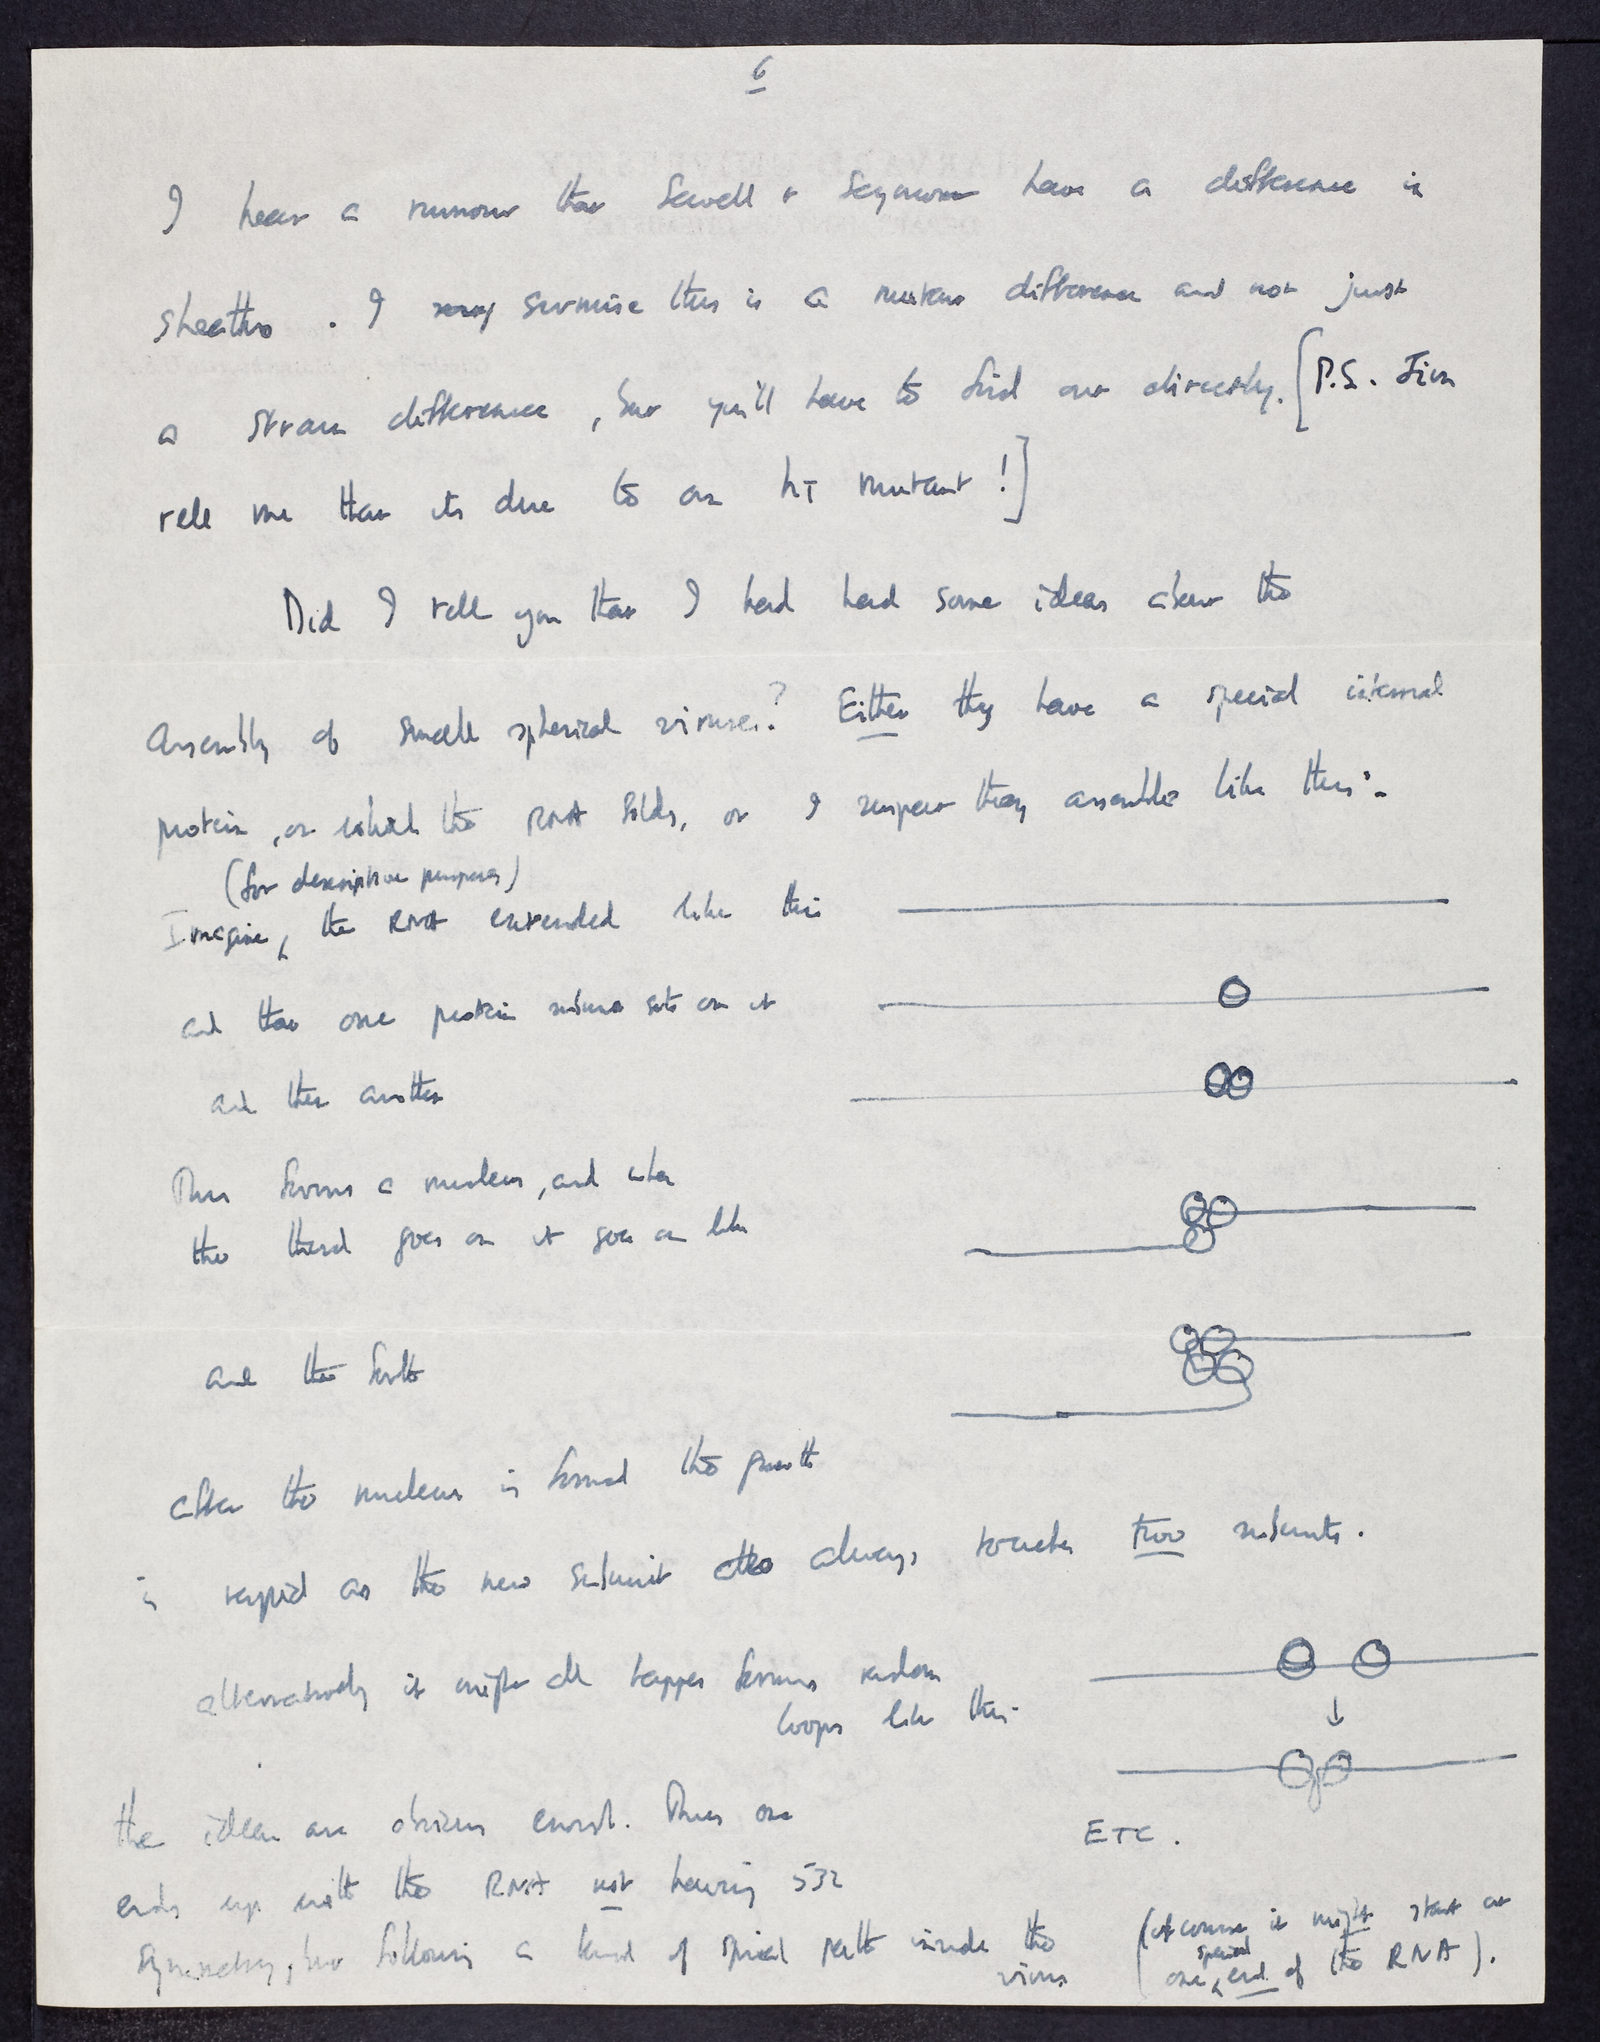 6
I hear a rumour that Sewell + Seymour have a difference in
sheaths. I surmise this is a mutant difference and not just
a strain difference, but you'll have to find out directly. [P.S. Jim
tell me that its due to an hT mutant!]
Did I tell you that I had had some ideas about the
assembly of small spherical viruses? Either they have a special internal
protein, on which the RNA folds, or I suspect they assemble like this:-
(for descriptive purposes)
Imagine, the RNA extended like this
and that one protein subunit sits on it
and then another
This forms a nucleus, and when
the third goes on it goes on like
and the forth
after the nucleus is formed the growth
is rapid as the new subunit always touches two subunits.
alternatively it might all happen forming random
loops like this-
the ideas are obvious enough. Thus one
ends up with the RNA not having 532
symmetry, but following a kind of spiral path inside the
virus
ETC.
(of course it might start at
one special end of the RNA).